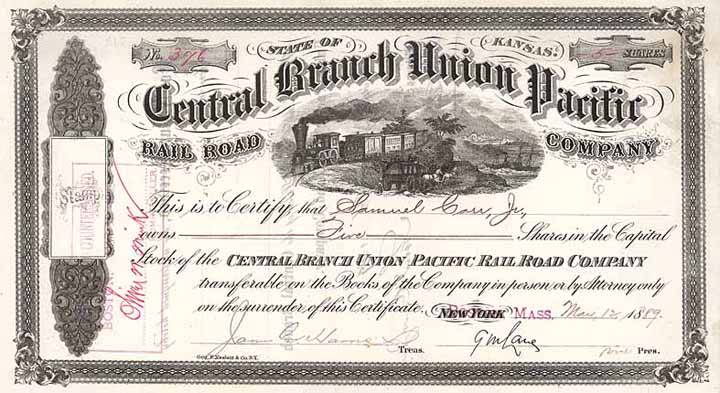 No. 376
STATE OF KANSAS.
5 SHARES
Central Branch Union Pacific
RAIL ROAD COMPANY
This is to Certify that Samuel Carr, Jr,
owns Five Shares in the Capital
Stock of the CENTRAL BRANCH UNION PACIFIC RAIL ROAD COMPANY
transferable on the Books of the Company in person or by Attorney only
on the surrender of this Certificate. NEW YORK MASS. May 13 1889.
Treas. Pres.
Geo. F. Nesbitt & Co. N.Y.
Stamp
BOSTON